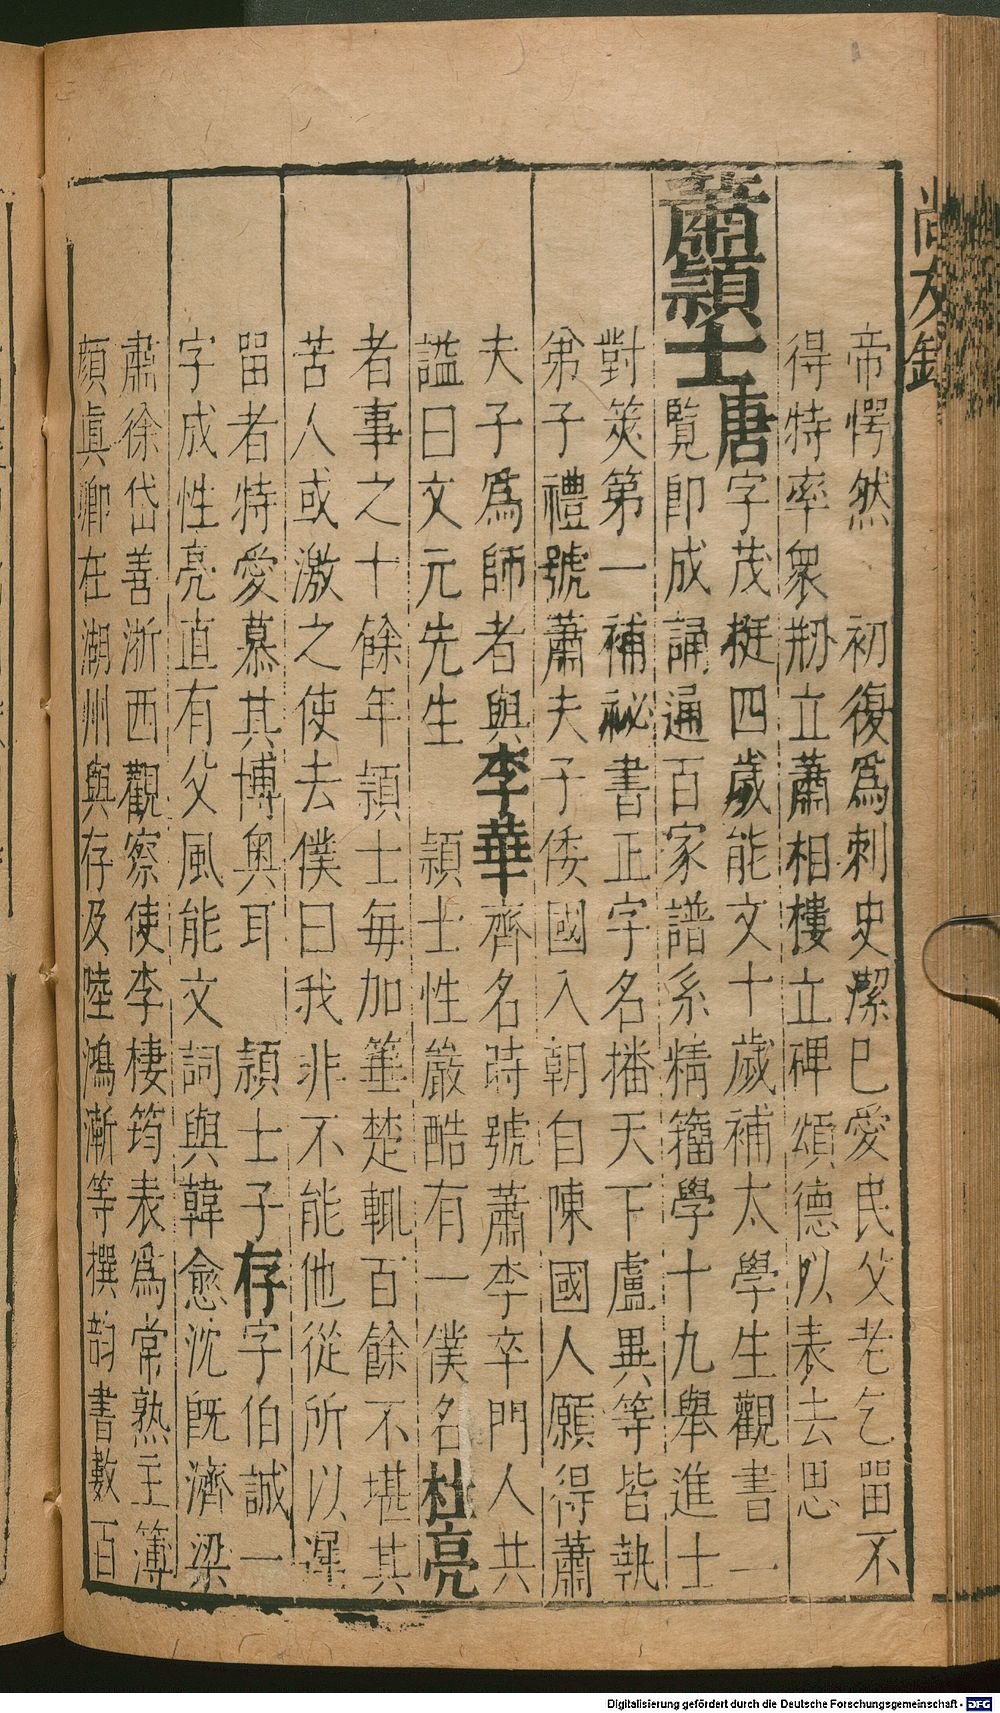 尚友錄
帝愕然　初復爲刺史潔巳愛民父老乞畱不
得特率衆刱立蕭相樓立碑頌德以表去思
蕭穎士唐字茂挺四歲能文十歲補太學生觀書一
覽卽成誦通百家譜系精籀學十九舉進士
對筴第一補祕書正字名播天下盧異等皆執
弟子禮號蕭夫子倭國入朝自陳國人願得蕭
夫子爲師者與李華齊名時號蕭李卒門人共
謚曰文元先生　穎士性嚴酷有一僕名杜亮
者事之十餘年穎士每加箠楚輒百餘不堪其
苦人或激之使去僕曰我非不能他從所以遲
畱者特愛慕其博奥耳　穎士子存字伯誠一
字成性亮直有父風能文詞與韓愈沈旣濟梁
肅徐岱善浙西觀察使李棲筠表爲常熟主簿
顔眞卿在湖州與存及陸鴻漸等撰韵書數百
Digitalisierung gefördert durch die Deutsche Forschungsgemeinschaft - DFG